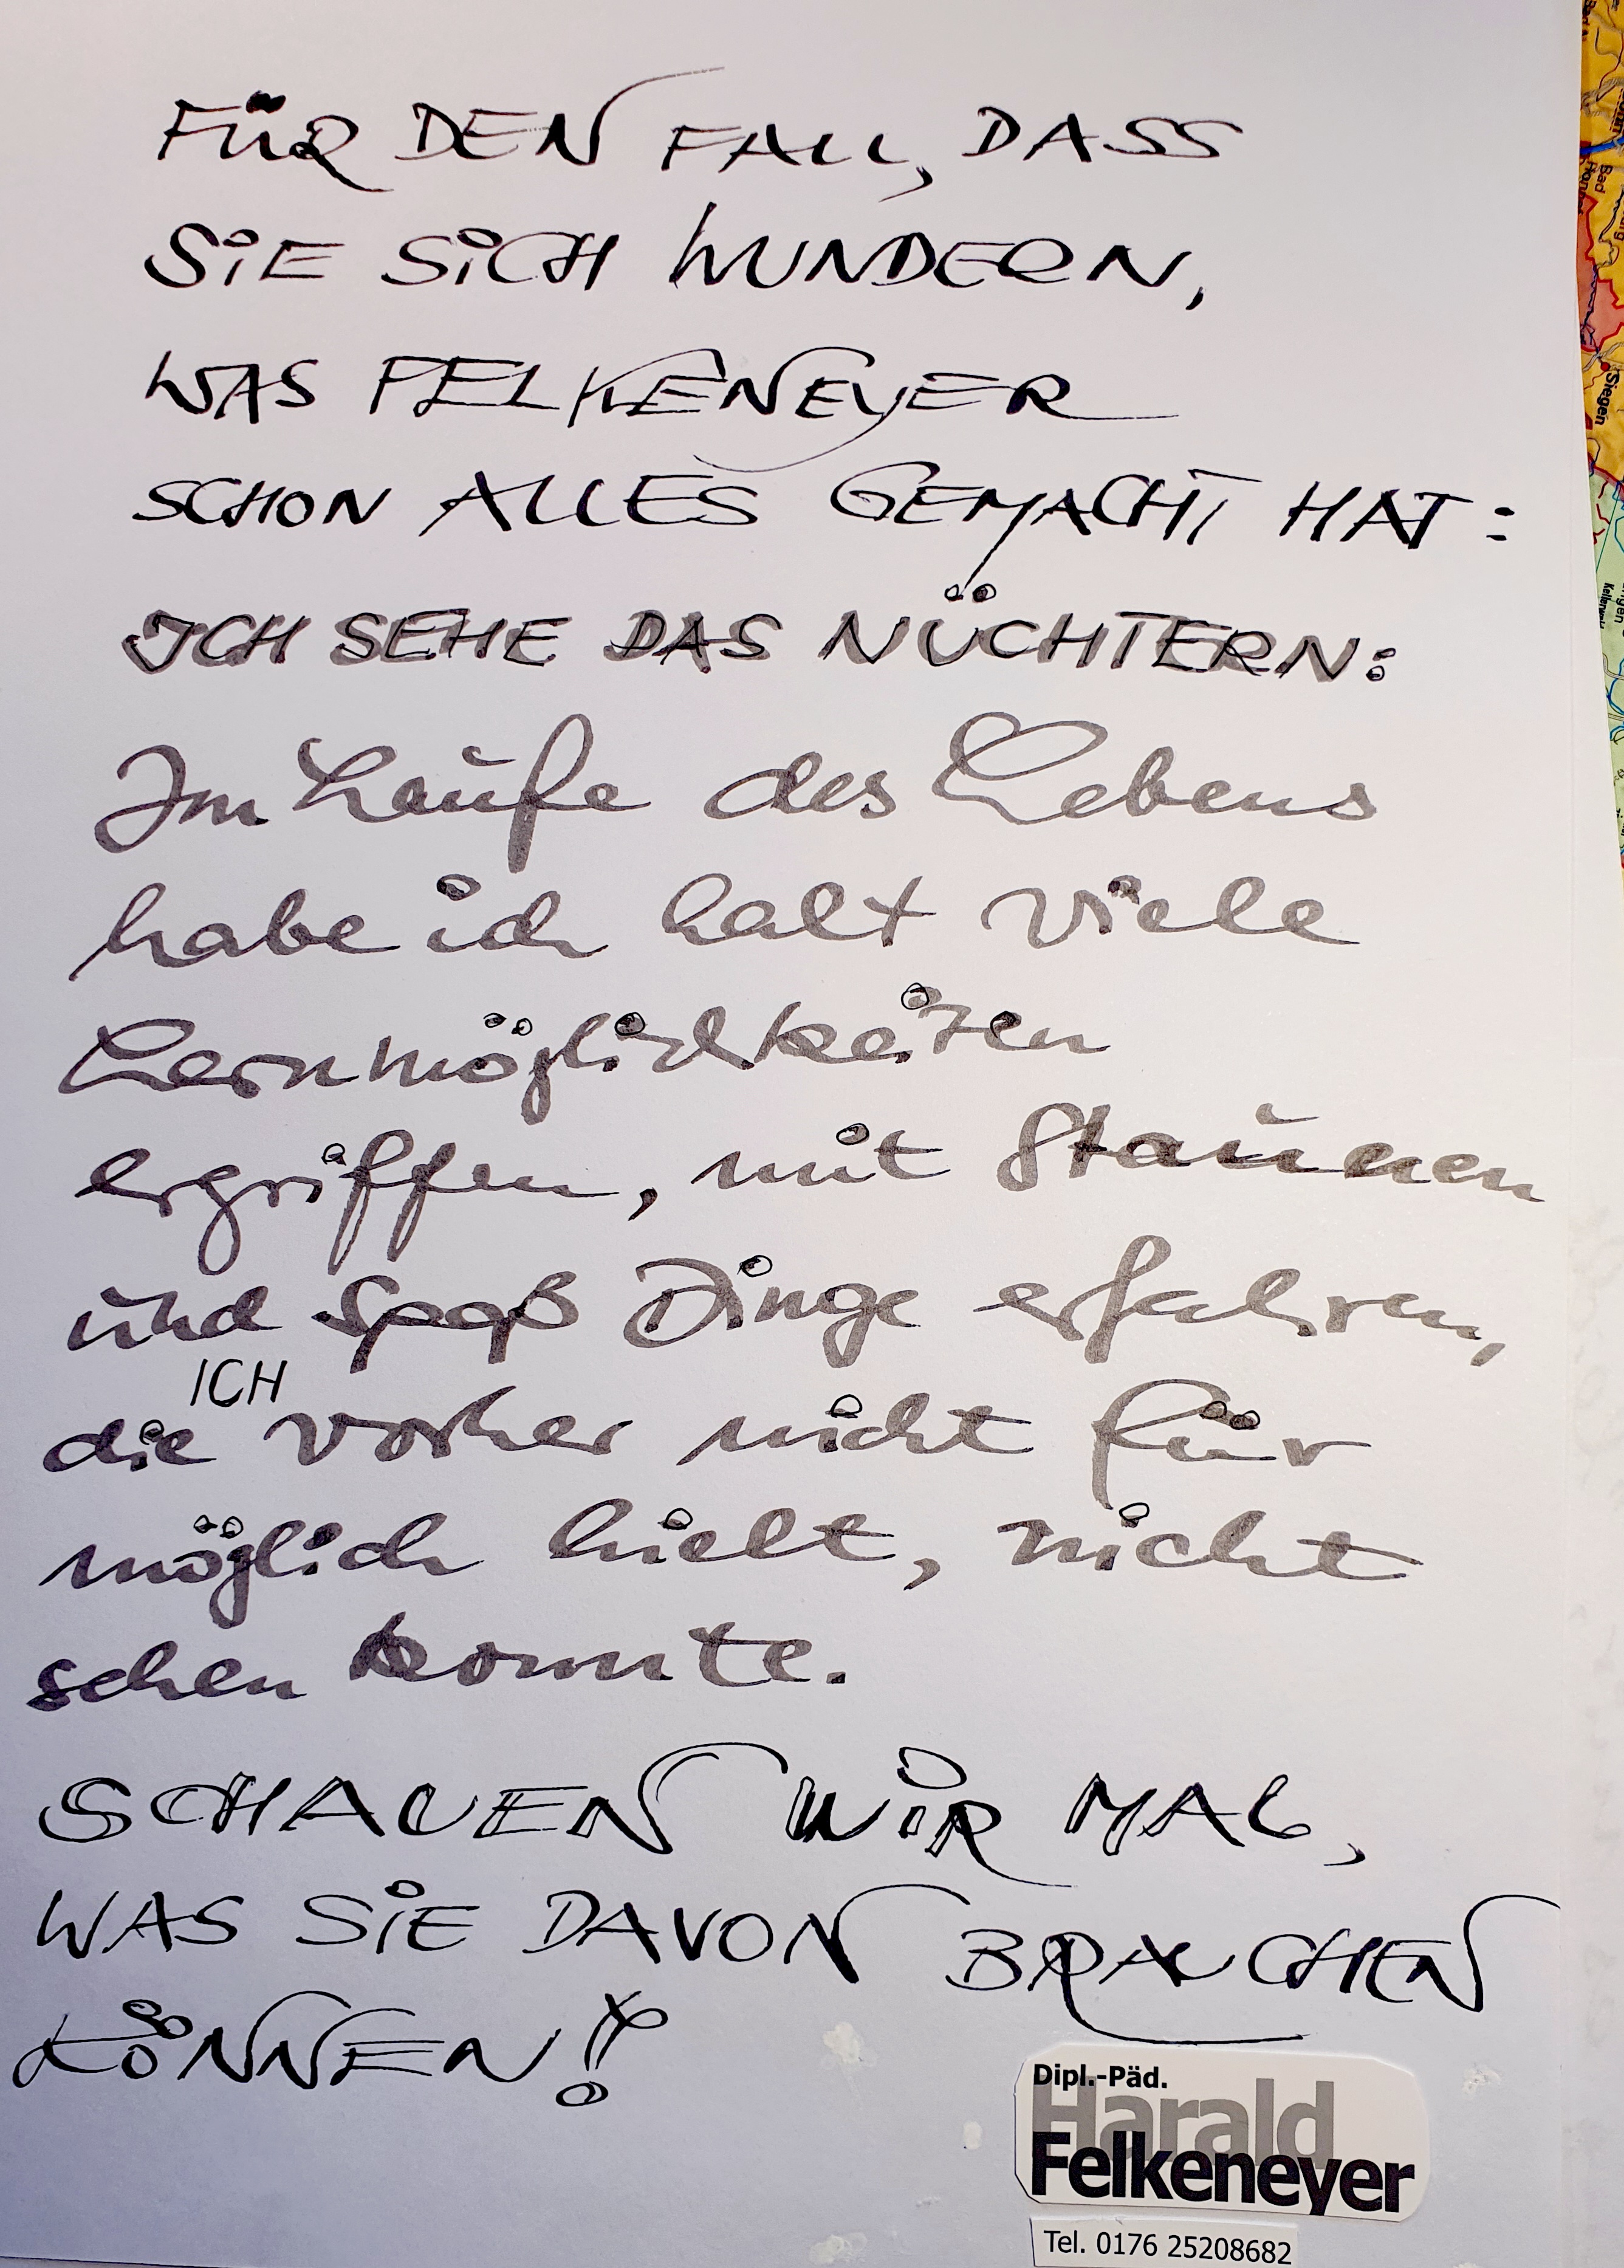 FÜR DEN FALL, DASS
SiE SiCH WUNDERN,
WAS FELKENEYER
SCHON ALLES GEMACHT HAT:
ICH SEHE DAS NÜCHTERN:
Im Laufe des Lebens
habe ich halt viele
Lernmöglichkeiten
ergriffen, mit Staunen
und Spaß Dinge erfahren,
die ICH vorher nicht für
möglich hielt, nicht
sehen konnte.
SCHAUEN WiR MAL,
WAS SiE DAVON BRAUCHEN
KÖNNEN!
Dipl.-Päd.
Harald
Felkeneyer
Tel. 0176 25208682
Siegen
Bad